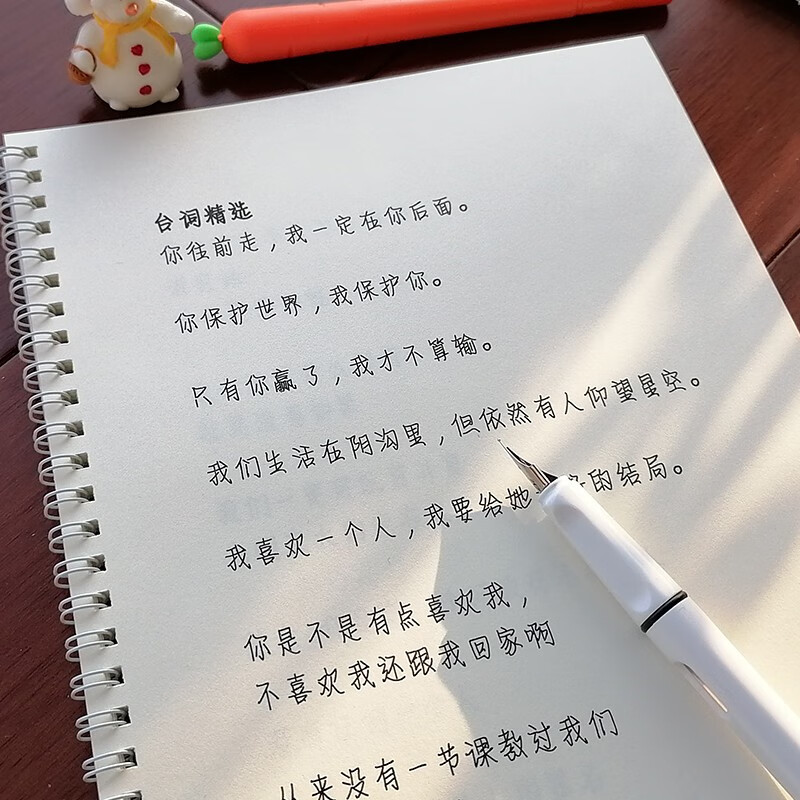 台词精选
你往前走，我一定在你后面。
你保护世界，我保护你。
只有你赢了，我才不算输。
我们生活在阴沟里，但依然有人仰望星空。
我喜欢一个人，我要给她的结局。
你是不是有点喜欢我，
不喜欢我还跟我回家啊
从来没有一节课教过我们